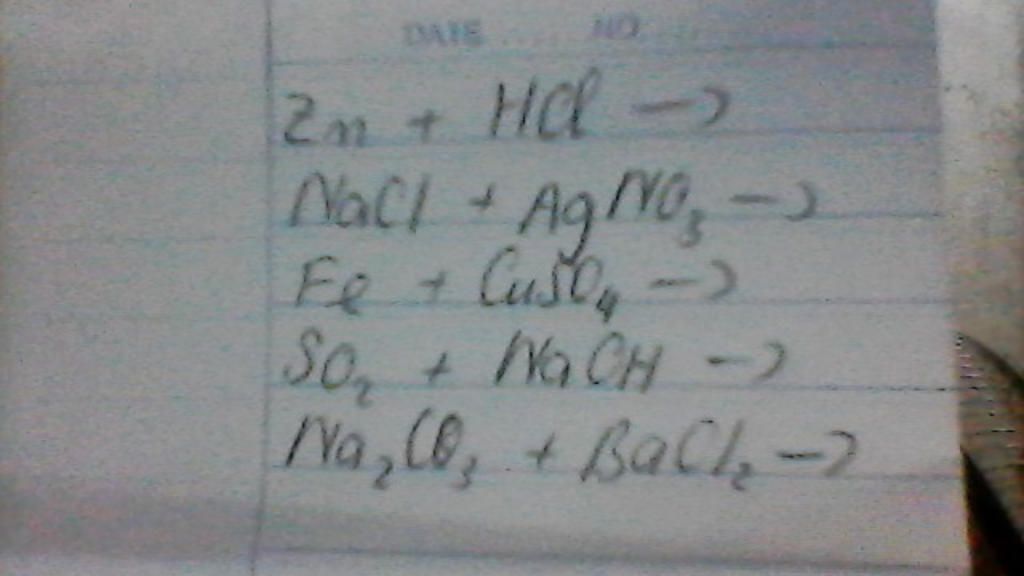 DATE ..... NO .....
Zn + HCl →
NaCl + AgNO₃ →
Fe + CuSO₄ →
SO₂ + NaOH →
Na₂CO₃ + BaCl₂ →